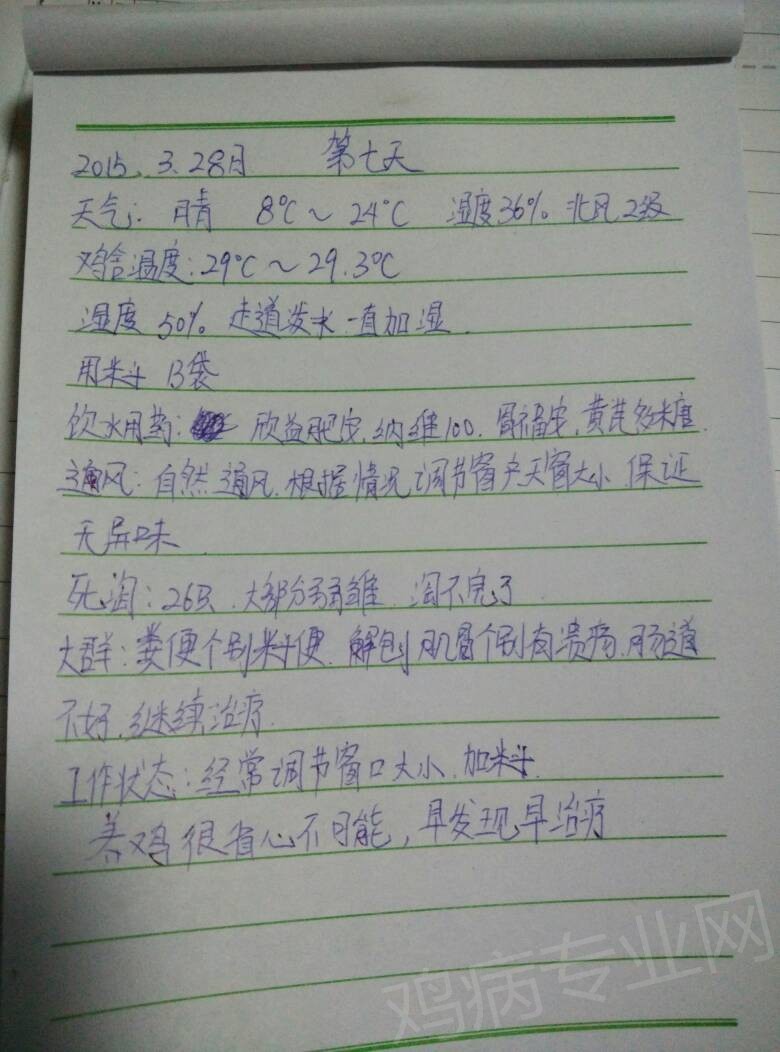 2015.3.28日 第七天
天气: 晴 8℃~24℃ 湿度36% 北风2级
鸡舍温度:29℃~29.3℃
湿度 50% 走道泼水一直加湿.
用料 13袋
饮水用药: 欣益肥定,纳维100. 胃福宝,黄芪多糖.
通风: 自然通风.根据情况调节窗户天窗大小 保证
无异味
死淘: 26只.大部分弱雏.淘不完了
大群: 粪便个别料便.解刨肌胃个别有溃疡.肠道
不好,继续治疗.
工作状态: 经常调节窗口大小.加料.
养鸡很省心不可能,早发现早治疗
鸡病专业网